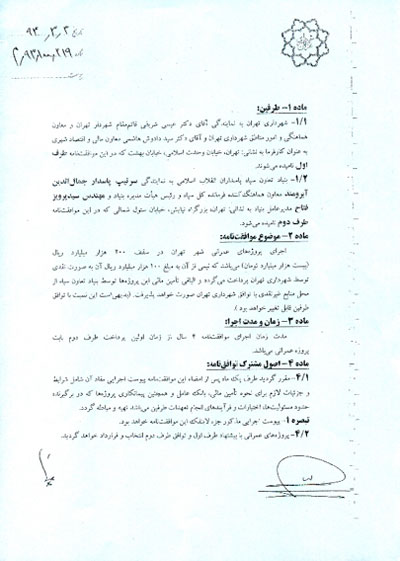 تاریخ ۹۳/۳/۲
ماده ۱- طرفین:
۱/۱- شهرداری تهران به نمایندگی آقای دکتر عیسی شریفی قائم‌مقام شهردار تهران و معاون
هماهنگی و امور مناطق شهرداری تهران و آقای دکتر سید دادوش هاشمی معاون مالی و اقتصاد شهری
به عنوان کارفرما به نشانی: تهران، خیابان وحدت اسلامی، خیابان بهشت که در این موافقت‌نامه طرف
اول نامیده می‌شوند.
۱/۲- بنیاد تعاون سپاه پاسداران انقلاب اسلامی به نمایندگی سرتیپ پاسدار جمال‌الدین
آبرومند معاون هماهنگ‌کننده فرمانده کل سپاه و رئیس هیأت مدیره بنیاد و مهندس سیدپرویز
فتاح مدیرعامل بنیاد به نشانی: تهران، بزرگراه نیایش، خیابان سئول شمالی که در این موافقت‌نامه
طرف دوم نامیده می‌شود.
ماده ۲- موضوع موافقت‌نامه:
اجرای پروژه‌های عمرانی شهر تهران در سقف ۲۰۰ هزار میلیارد ریال
(بیست هزار میلیارد تومان) می‌باشد که نیمی از آن به مبلغ ۱۰۰ هزار میلیارد ریال آن به صورت نقدی
توسط شهرداری تهران پرداخت می‌گردد و الباقی تأمین مالی این پروژه‌ها توسط بنیاد تعاون سپاه از
محل منابع غیرنقدی با توافق شهرداری تهران صورت خواهد پذیرفت. (بدیهی است این نسبت با توافق
طرفین قابل تغییر خواهد بود)
ماده ۳- زمان و مدت اجرا:
مدت زمان اجرای موافقت‌نامه ۴ سال از زمان اولین پرداخت طرف دوم بابت
پروژه عمرانی می‌باشد.
ماده ۴- اصول مشترک توافق‌نامه:
۴/۱- مقرر گردید ظرف یک ماه پس از امضاء این موافقت‌نامه پیوست اجرایی مفاد آن شامل شرایط
و جزئیات لازم برای نحوه تأمین مالی، بانک عامل و همچنین پیمانکاری پروژه‌ها که در برگیرنده
حدود مسئولیت‌ها، اختیارات و فرآیندهای انجام تعهدات طرفین می‌باشد تهیه و مبادله گردد.
تبصره ۱- پیوست اجرایی مذکور جزء لاینفک این موافقت‌نامه خواهد بود.
۴/۲- پروژه‌های عمرانی با پیشنهاد طرف اول و توافق طرف دوم انتخاب و قرارداد خواهد گردید.